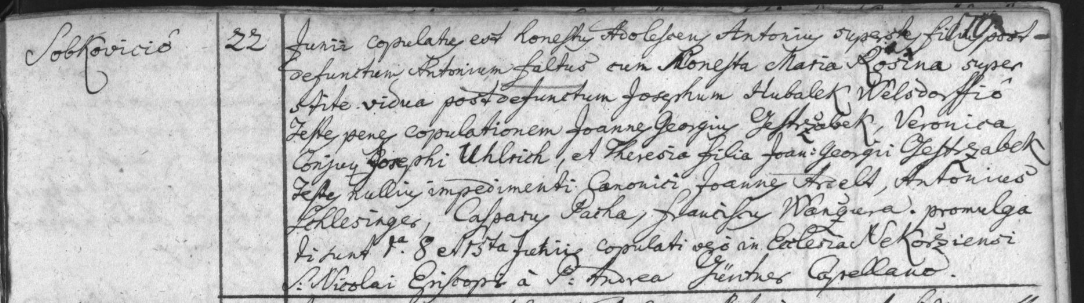 Sobkovició 22 Junii copulatus est honestus Adolescens Antonius superstes filius post-
defunctum Antonium Faltus cum Honesta Maria Rosina super
stite vidua post defunctum Josephum Hubalek Welsdorffió
Testes penes copulationem Joannes Georgius Jestržabek, Veronica
Conjux Josephi Uhlrich, et Theresia filia Joan: Georgii Jestrzabek
Testes nullius impedimenti Canonici Joannes Arcelt, Antonius
Schlesinger, Casparus Pacha, Franciscus Wanžura. promulga
ti sunt 1.a 8 et 15ta Junii, copulati vero in Ecclesia Nekoržiensi
S: Nicolai Episcopi à P: Andrea Güntner Capellano.